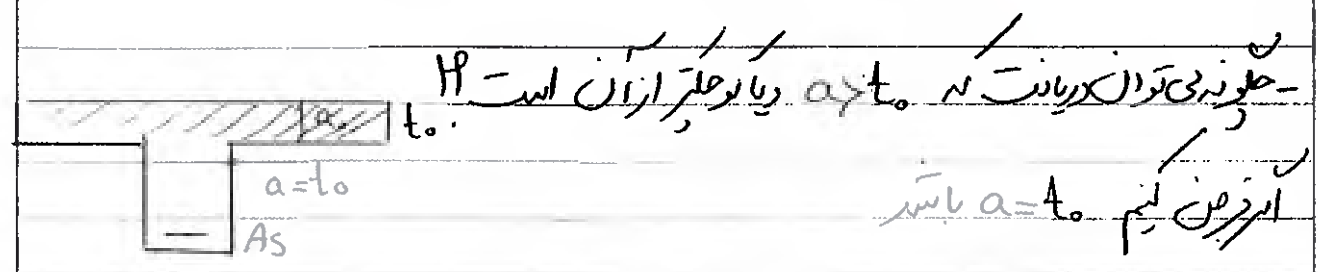 - چگونه می توان دریافت که a > t₀ و یا کوچکتر از آن است ؟!
a t₀
a = t₀
اگر فرض کنیم a = t₀ باشد
As